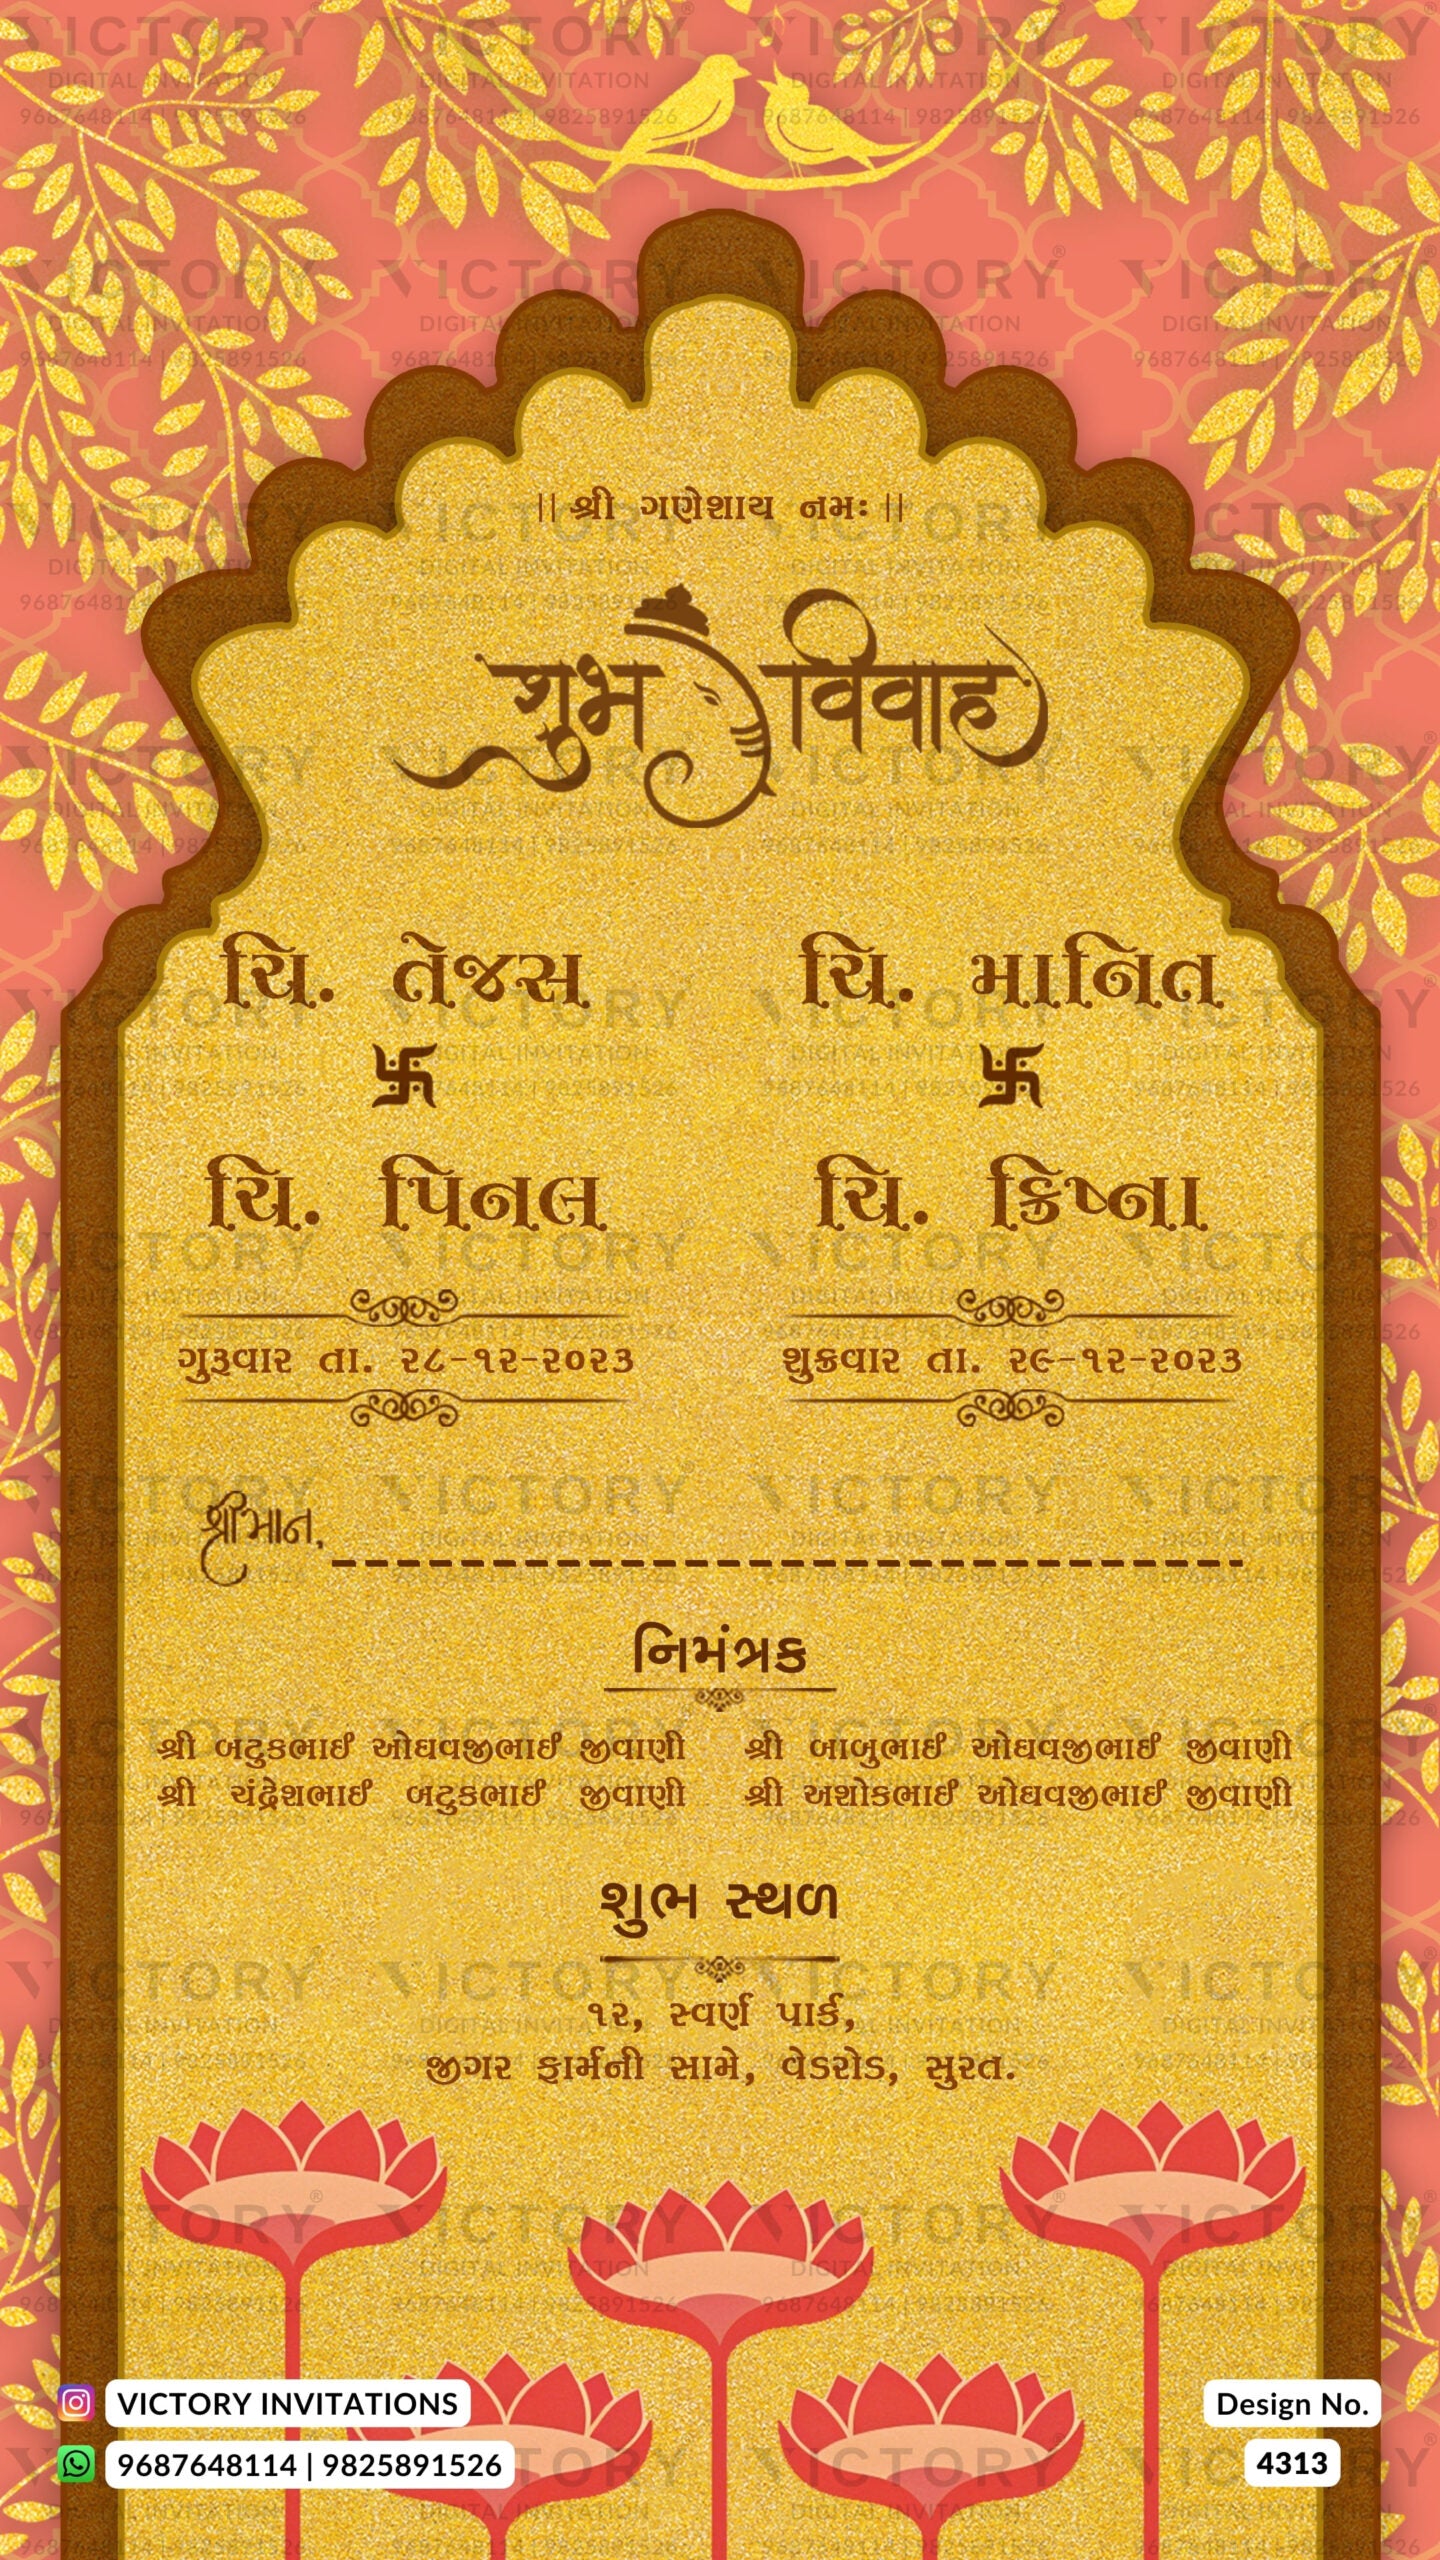 || શ્રી ગણેશાય નમઃ ||
शुभ विवाह
ચિ. તેજસ
卐
ચિ. પિનલ
ગુરૂવાર તા. ૨૮-૧૨-૨૦૨૩
ચિ. માનિત
卐
ચિ. ક્રિષ્ના
શુક્રવાર તા. ૨૯-૧૨-૨૦૨૩
શ્રીમાન,
નિમંત્રક
શ્રી બટુકભાઈ ઓઘવજીભાઈ જીવાણી
શ્રી ચંદ્રેશભાઈ બટુકભાઈ જીવાણી
શ્રી બાબુભાઈ ઓઘવજીભાઈ જીવાણી
શ્રી અશોકભાઈ ઓઘવજીભાઈ જીવાણી
શુભ સ્થળ
૧૨, સ્વર્ણ પાર્ક,
જીગર ફાર્મની સામે, વેડરોડ, સુરત.
VICTORY INVITATIONS
9687648114 | 9825891526
Design No.
4313
VICTORY®
DIGITAL INVITATION
9687648114 | 9825891526